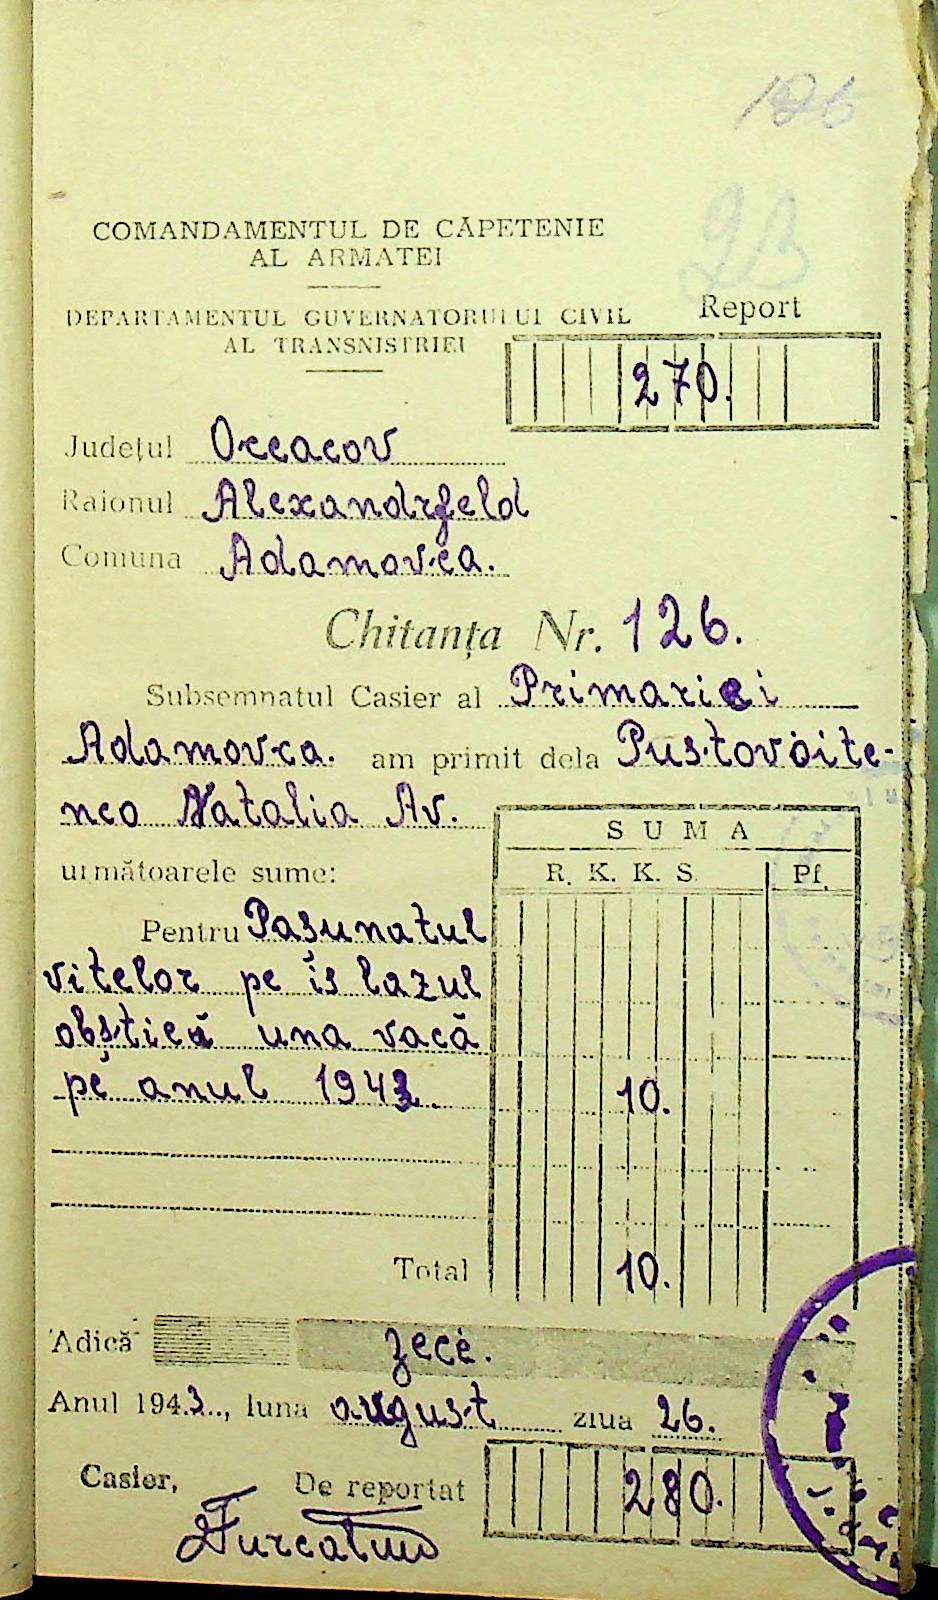 126
23
COMANDAMENTUL DE CĂPETENIE
AL ARMATEI
DEPARTAMENTUL GUVERNATORULUI CIVIL
AL TRANSNISTRIEI
Report
270.
Județul Oceacov
Raionul Alexandrfeld
Comuna Adamovca.
Chitanța Nr. 126.
Subsemnatul Casier al Primariei
Adamovca. am primit dela Pustovoite-
nco Natalia Av.
următoarele sume:
SUMA
R. K. K. S. Pf.
Pentru Pașunatul
vitelor pe islazul
obștieă una vacă
pe anul 1943. 10.
Total 10.
Adică zece.
Anul 1943., luna august ziua 26.
Casier, De reportat 280.